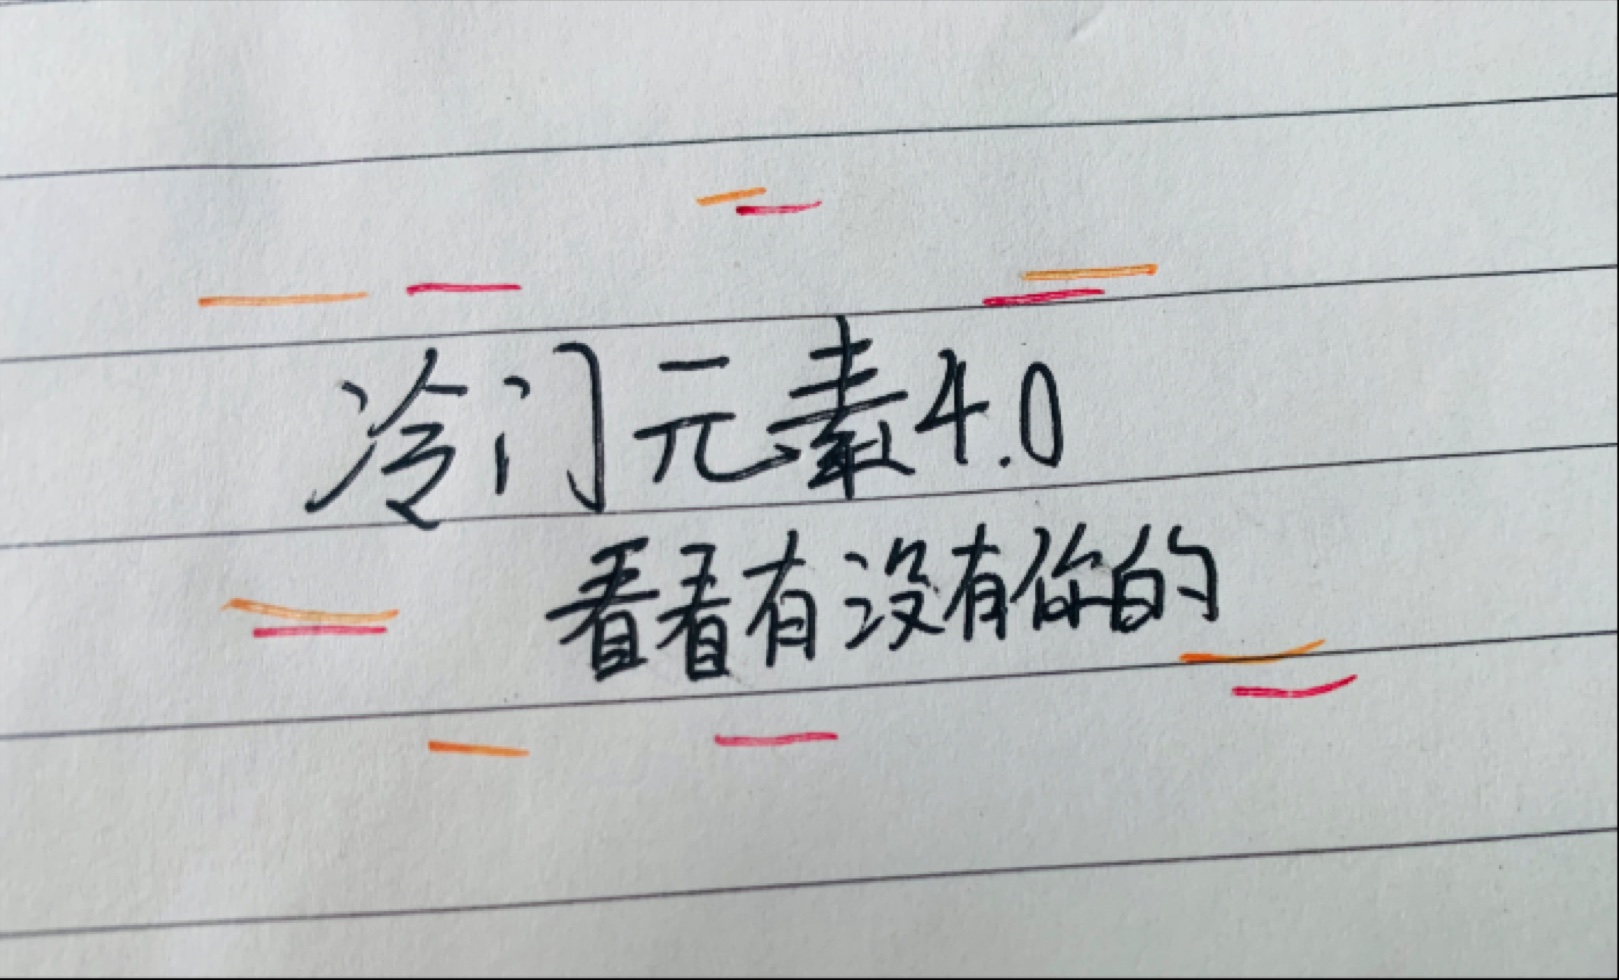 冷门元素4.0
看看有没有你的